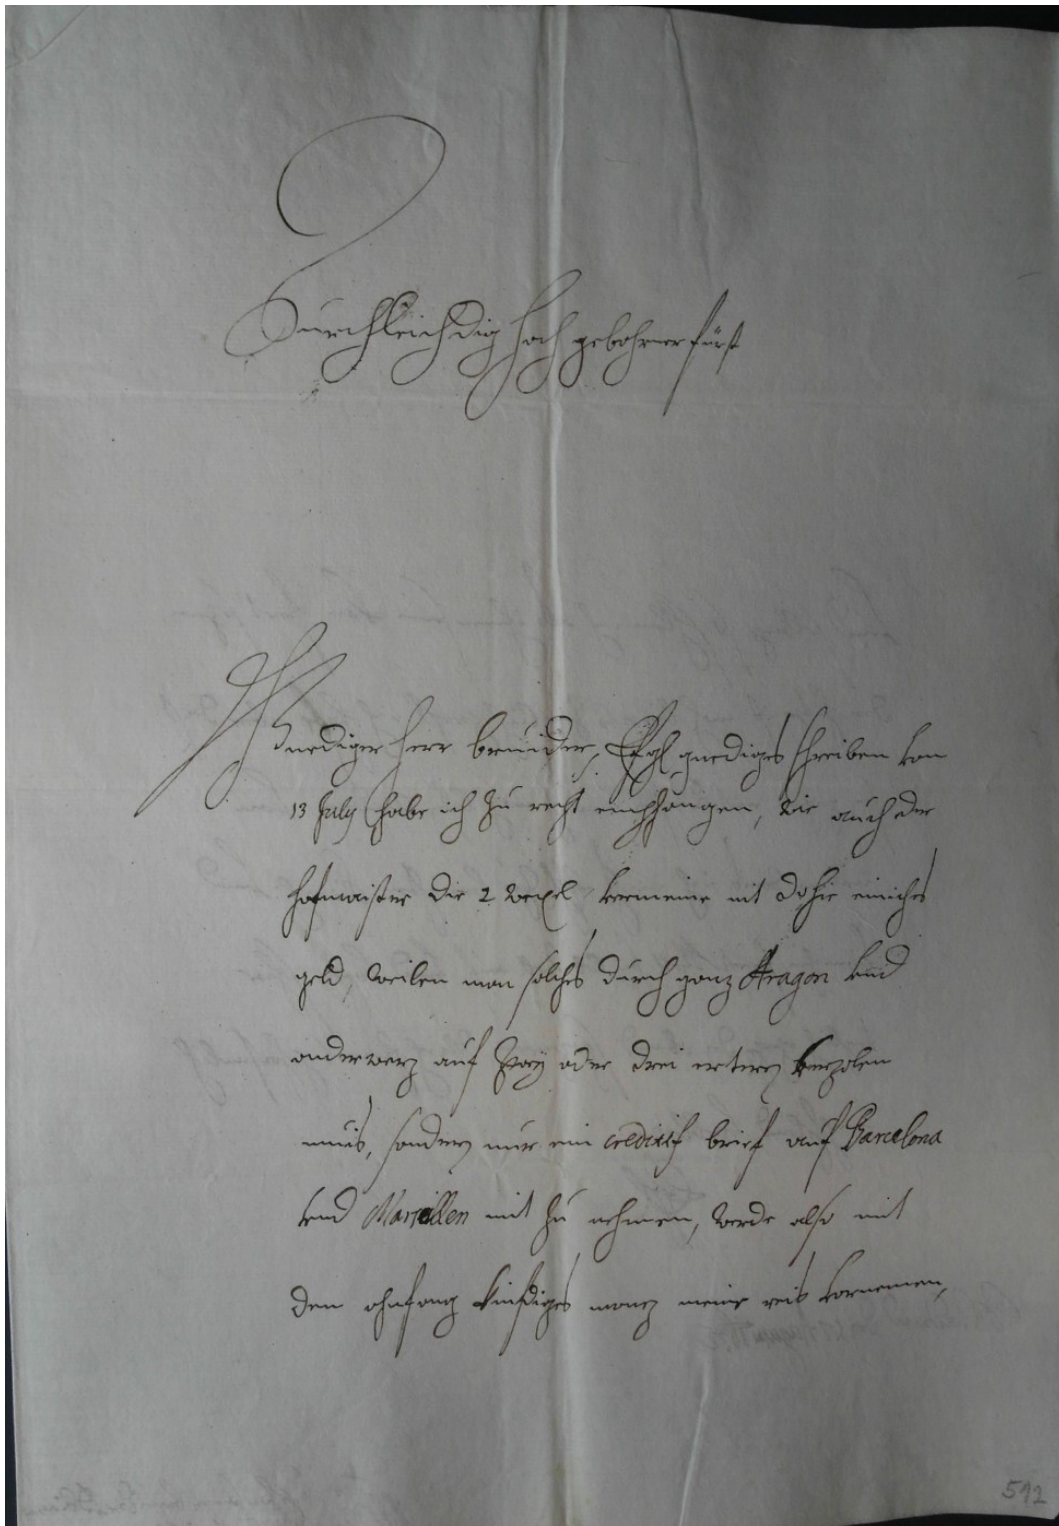 Durchleichdig hoch gebohrner fürst
Gnediger herr bruider, Efgl gnediges schreiben von
13 July habe ich zu recht emphangen, wie auch der
hofmaister die 2 wexel vermeine mit dohie einiches
geld, weilen man solches durch ganz Aragon vnd
anderwerz auf zway oder drei erterz verzolen
muis, sonderz nur ein creditif brief auf Barcelona
vnd Marsillen mit zu nehmen, werde also mit
den ahnfang kinfdiges monez meine reis vornemen,
592